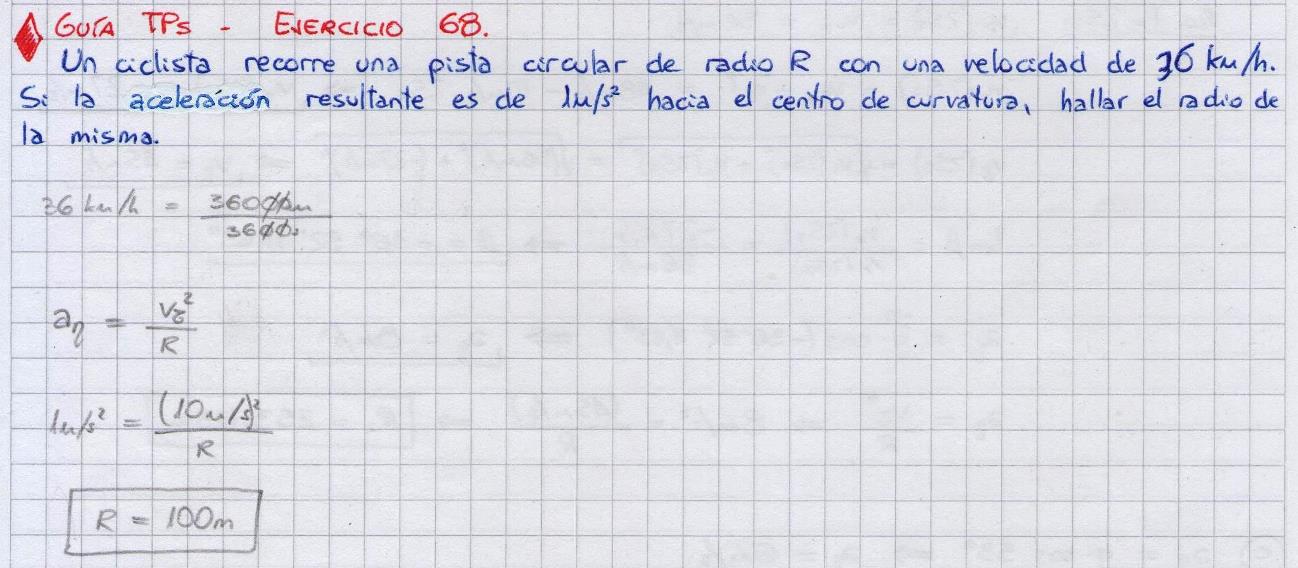 GUÍA TPs - EJERCICIO 68.
Un ciclista recorre una pista circular de radio R con una velocidad de 36 km/h.
Si la aceleración resultante es de 1m/s² hacia el centro de curvatura, hallar el radio de
la misma.
36 km/h = 36000m / 3600s
aη = vτ² / R
1m/s² = (10m/s)² / R
R = 100m